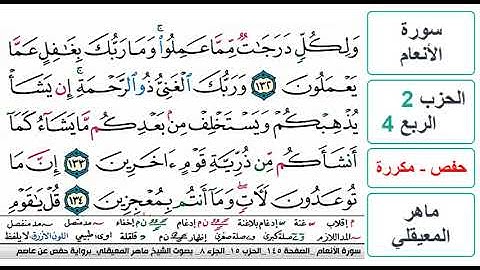 وَلِكُلٍّ دَرَجَٰتٌ مِّمَّا عَمِلُوا۟ ۚ وَمَا رَبُّكَ بِغَٰفِلٍ عَمَّا
يَعْمَلُونَ ١٣٢ وَرَبُّكَ ٱلْغَنِىُّ ذُو ٱلرَّحْمَةِ ۚ إِن يَشَأْ
يُذْهِبْكُمْ وَيَسْتَخْلِفْ مِنۢ بَعْدِكُم مَّا يَشَآءُ كَمَآ
أَنشَأَكُم مِّن ذُرِّيَّةِ قَوْمٍ ءَاخَرِينَ ١٣٣ إِنَّ مَا
تُوعَدُونَ لَءَاتٍ ۖ وَمَآ أَنتُم بِمُعْجِزِينَ ١٣٤ قُلْ يَٰقَوْمِ
سورة
الأنعام
الحزب 2
الربع 4
حفص - مكررة
ماهر
المعيقلي
سورة الأنعام_ الصفحة ١٤٥_ الحزب ١٥_ الجزء ٨_ بصوت الشيخ ماهر المعيقلي_ برواية حفص عن عاصم